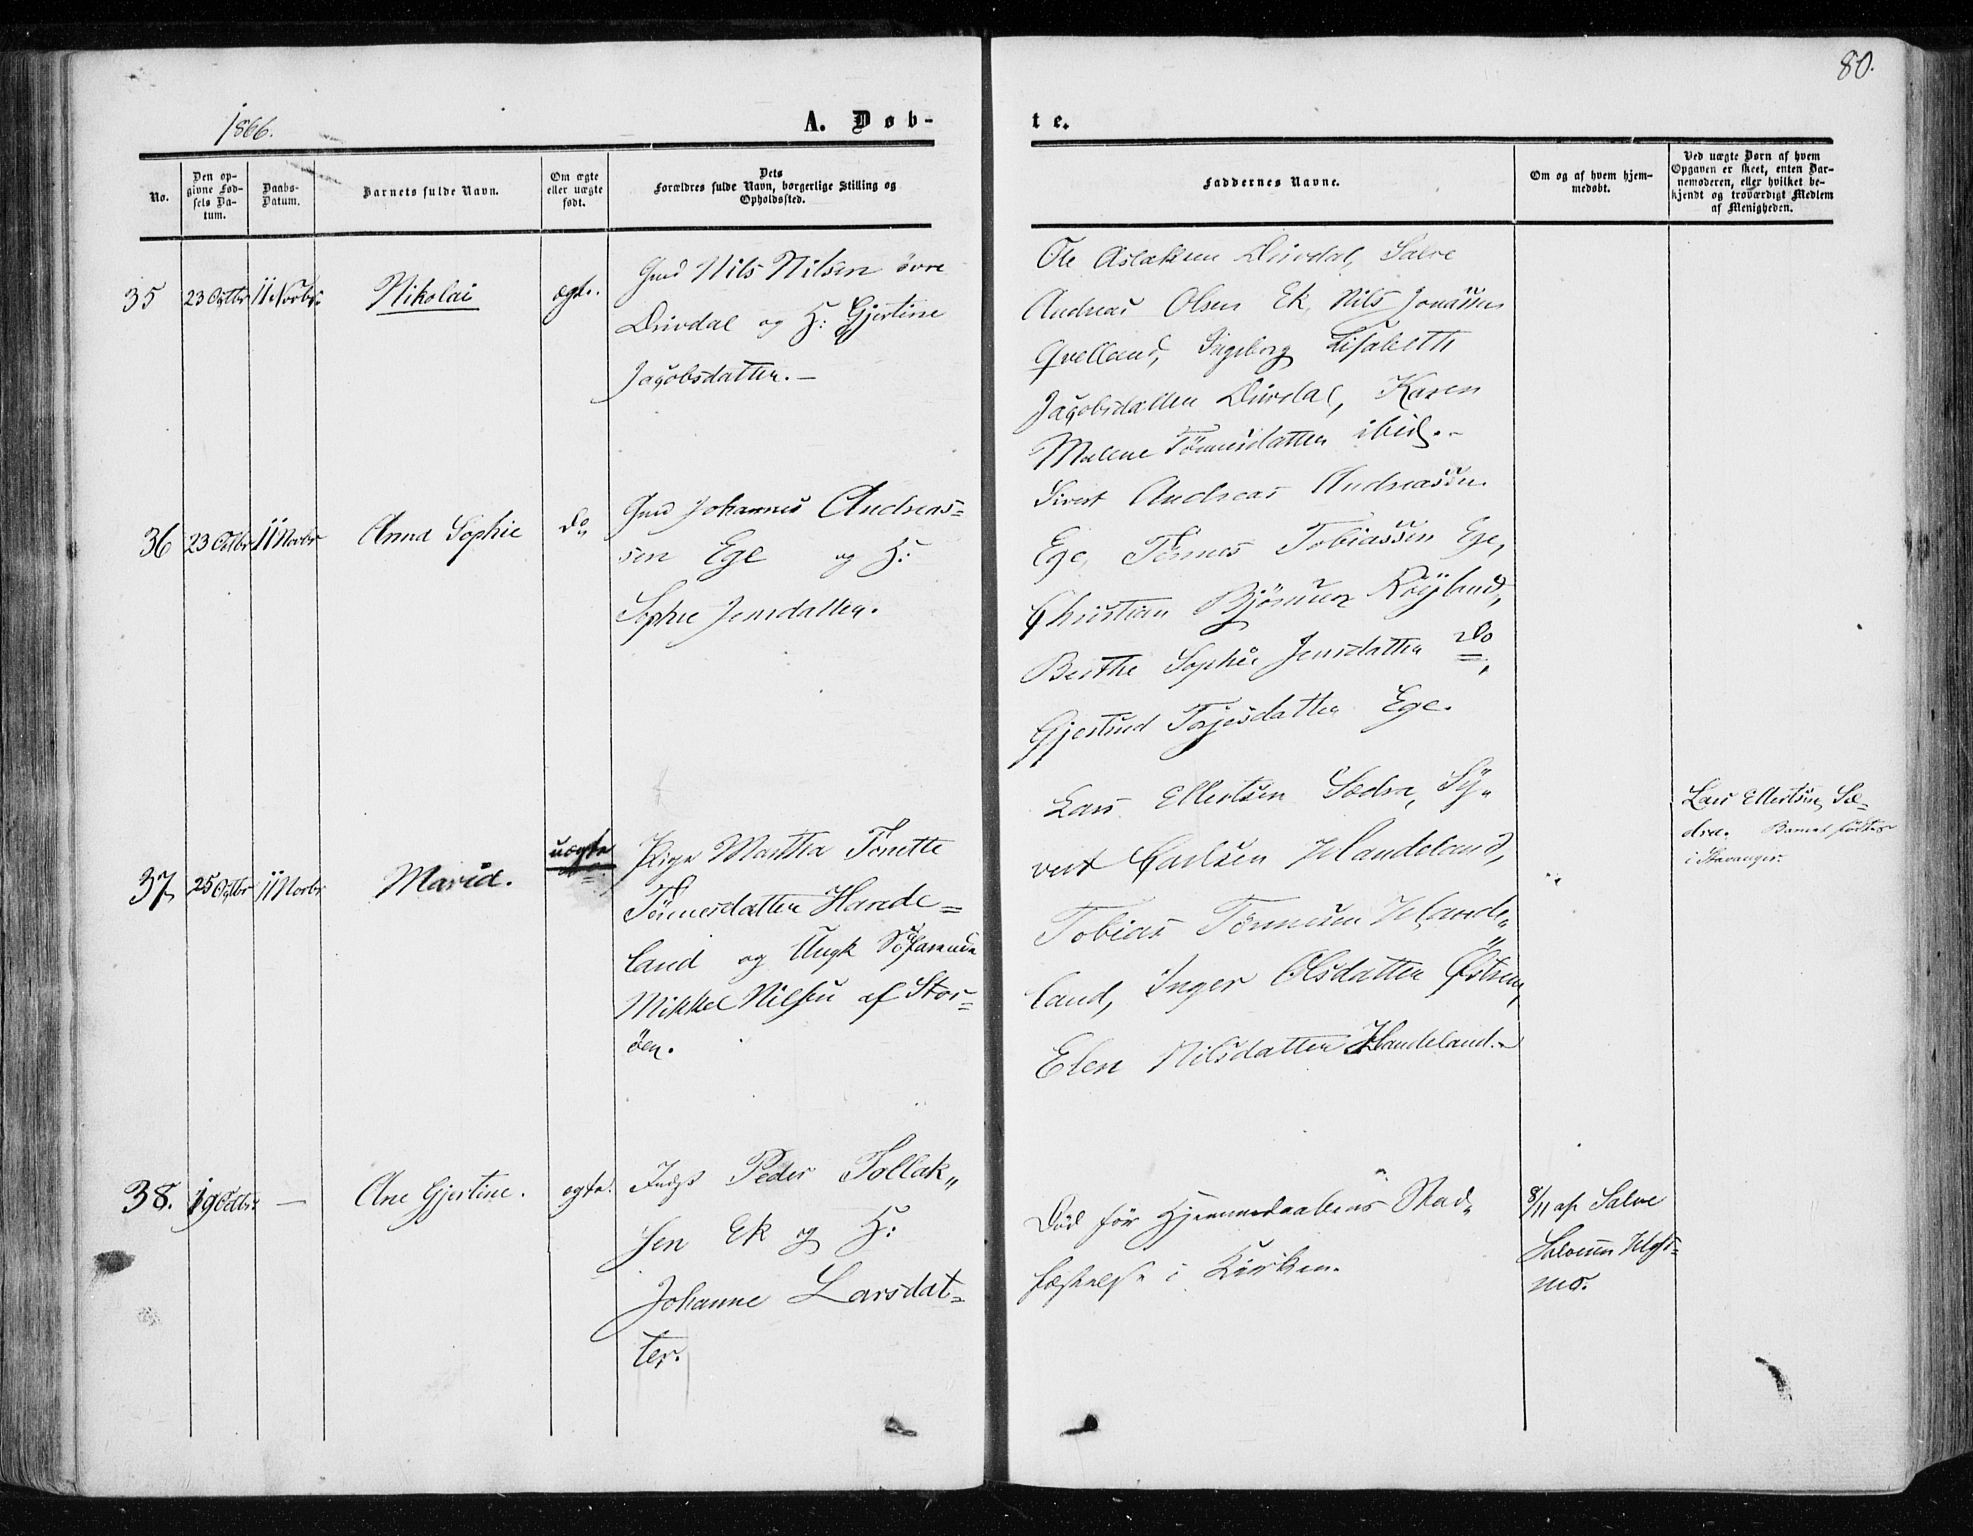 80.
1866.
A. Døb-
te.
No.
Den op-
givne Fød-
sels Da-
tum.
Daabs-
Datum.
Barnets fulde Navn.
Om ægte
eller uægte
født.
Dets
Forældres fulde Navn, borgerlige Stilling og
Opholdssted.
Faddernes Navne.
Om og af hvem hjem-
medøbt.
Ved uægte Børn af hvem
Opgaven er skeet, enten Bar-
nemoderen, eller hvilket be-
kjendt og troværdigt Medlem
af Menigheden.
35
23 Octbr
11 Novbr
Nikolai
ægte.
Gmd Nils Nilsen övre
Duvdal og H: Gjertine
Jacobsdatter.–
Ole Aslaksen Duvdal, Salve
Andreas Olsen Ek, Nils Jonassen
Qvelland, Ingeborg Lisabeth
Jacobsdatter Duvdal, Karen
Malene Tönnesdatter ibid.–
36
23 Octbr
11 Novbr
Anna Sophie
do
Gmd Johannes Andreas=
sen Ege og H:
Sophie Jensdatter.
Sivert Andreas Andreassen
Ege, Tönnes Tobiassen Ege,
Christian Björnsen Röyland,
Berthe Sophie Jensdatter do,
Gjertrud Terjesdatter Ege.
37
25 Octbr
11 Novbr
Maria.
uægte
Pige Martha Tonette
Tönnesdatter Hande=
land og Ungk Söfarende
Mikkel Nilsen af Stor=
öen.
Lars Ellertsen Sædra, Sy„
vert Carlsen Handeland,
Tobias Tönnesen Hande„
land, Inger Olsdatter Östrem,
Elen Nilsdatter Handeland.–
Lars Ellertsen Sæ=
dra. Barnet födtes
i Stavanger.
38.
19 Octbr
—
Ane Gjertine.
ægte.
Indst Peder Tollak„
sen Ek og H:
Johanne Larsdat=
ter.
Död för Hjemmedaabens Stad„
fæstelse i Kirken.
8/11 af Salve
Salvesen
mo.